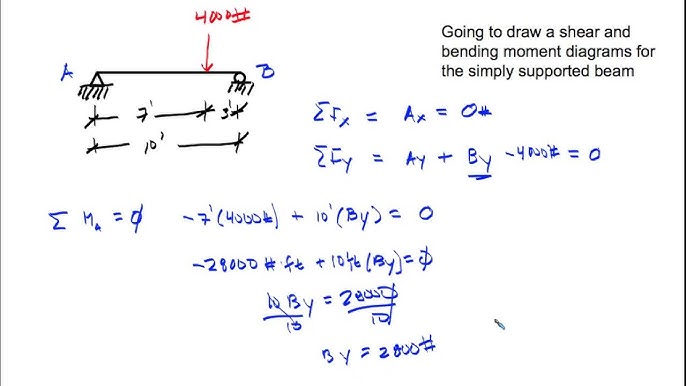 4000#
Going to draw a shear and
bending moment diagrams for
the simply supported beam
A B
7' 3'
10'
ΣFx = Ax = 0#
ΣFy = Ay + By - 4000# = 0
Σ Ma = 0 -7'(4000#) + 10'(By) = 0
-28000#·ft + 10ft(By) = 0
10By = 28000
10 10
By = 2800#